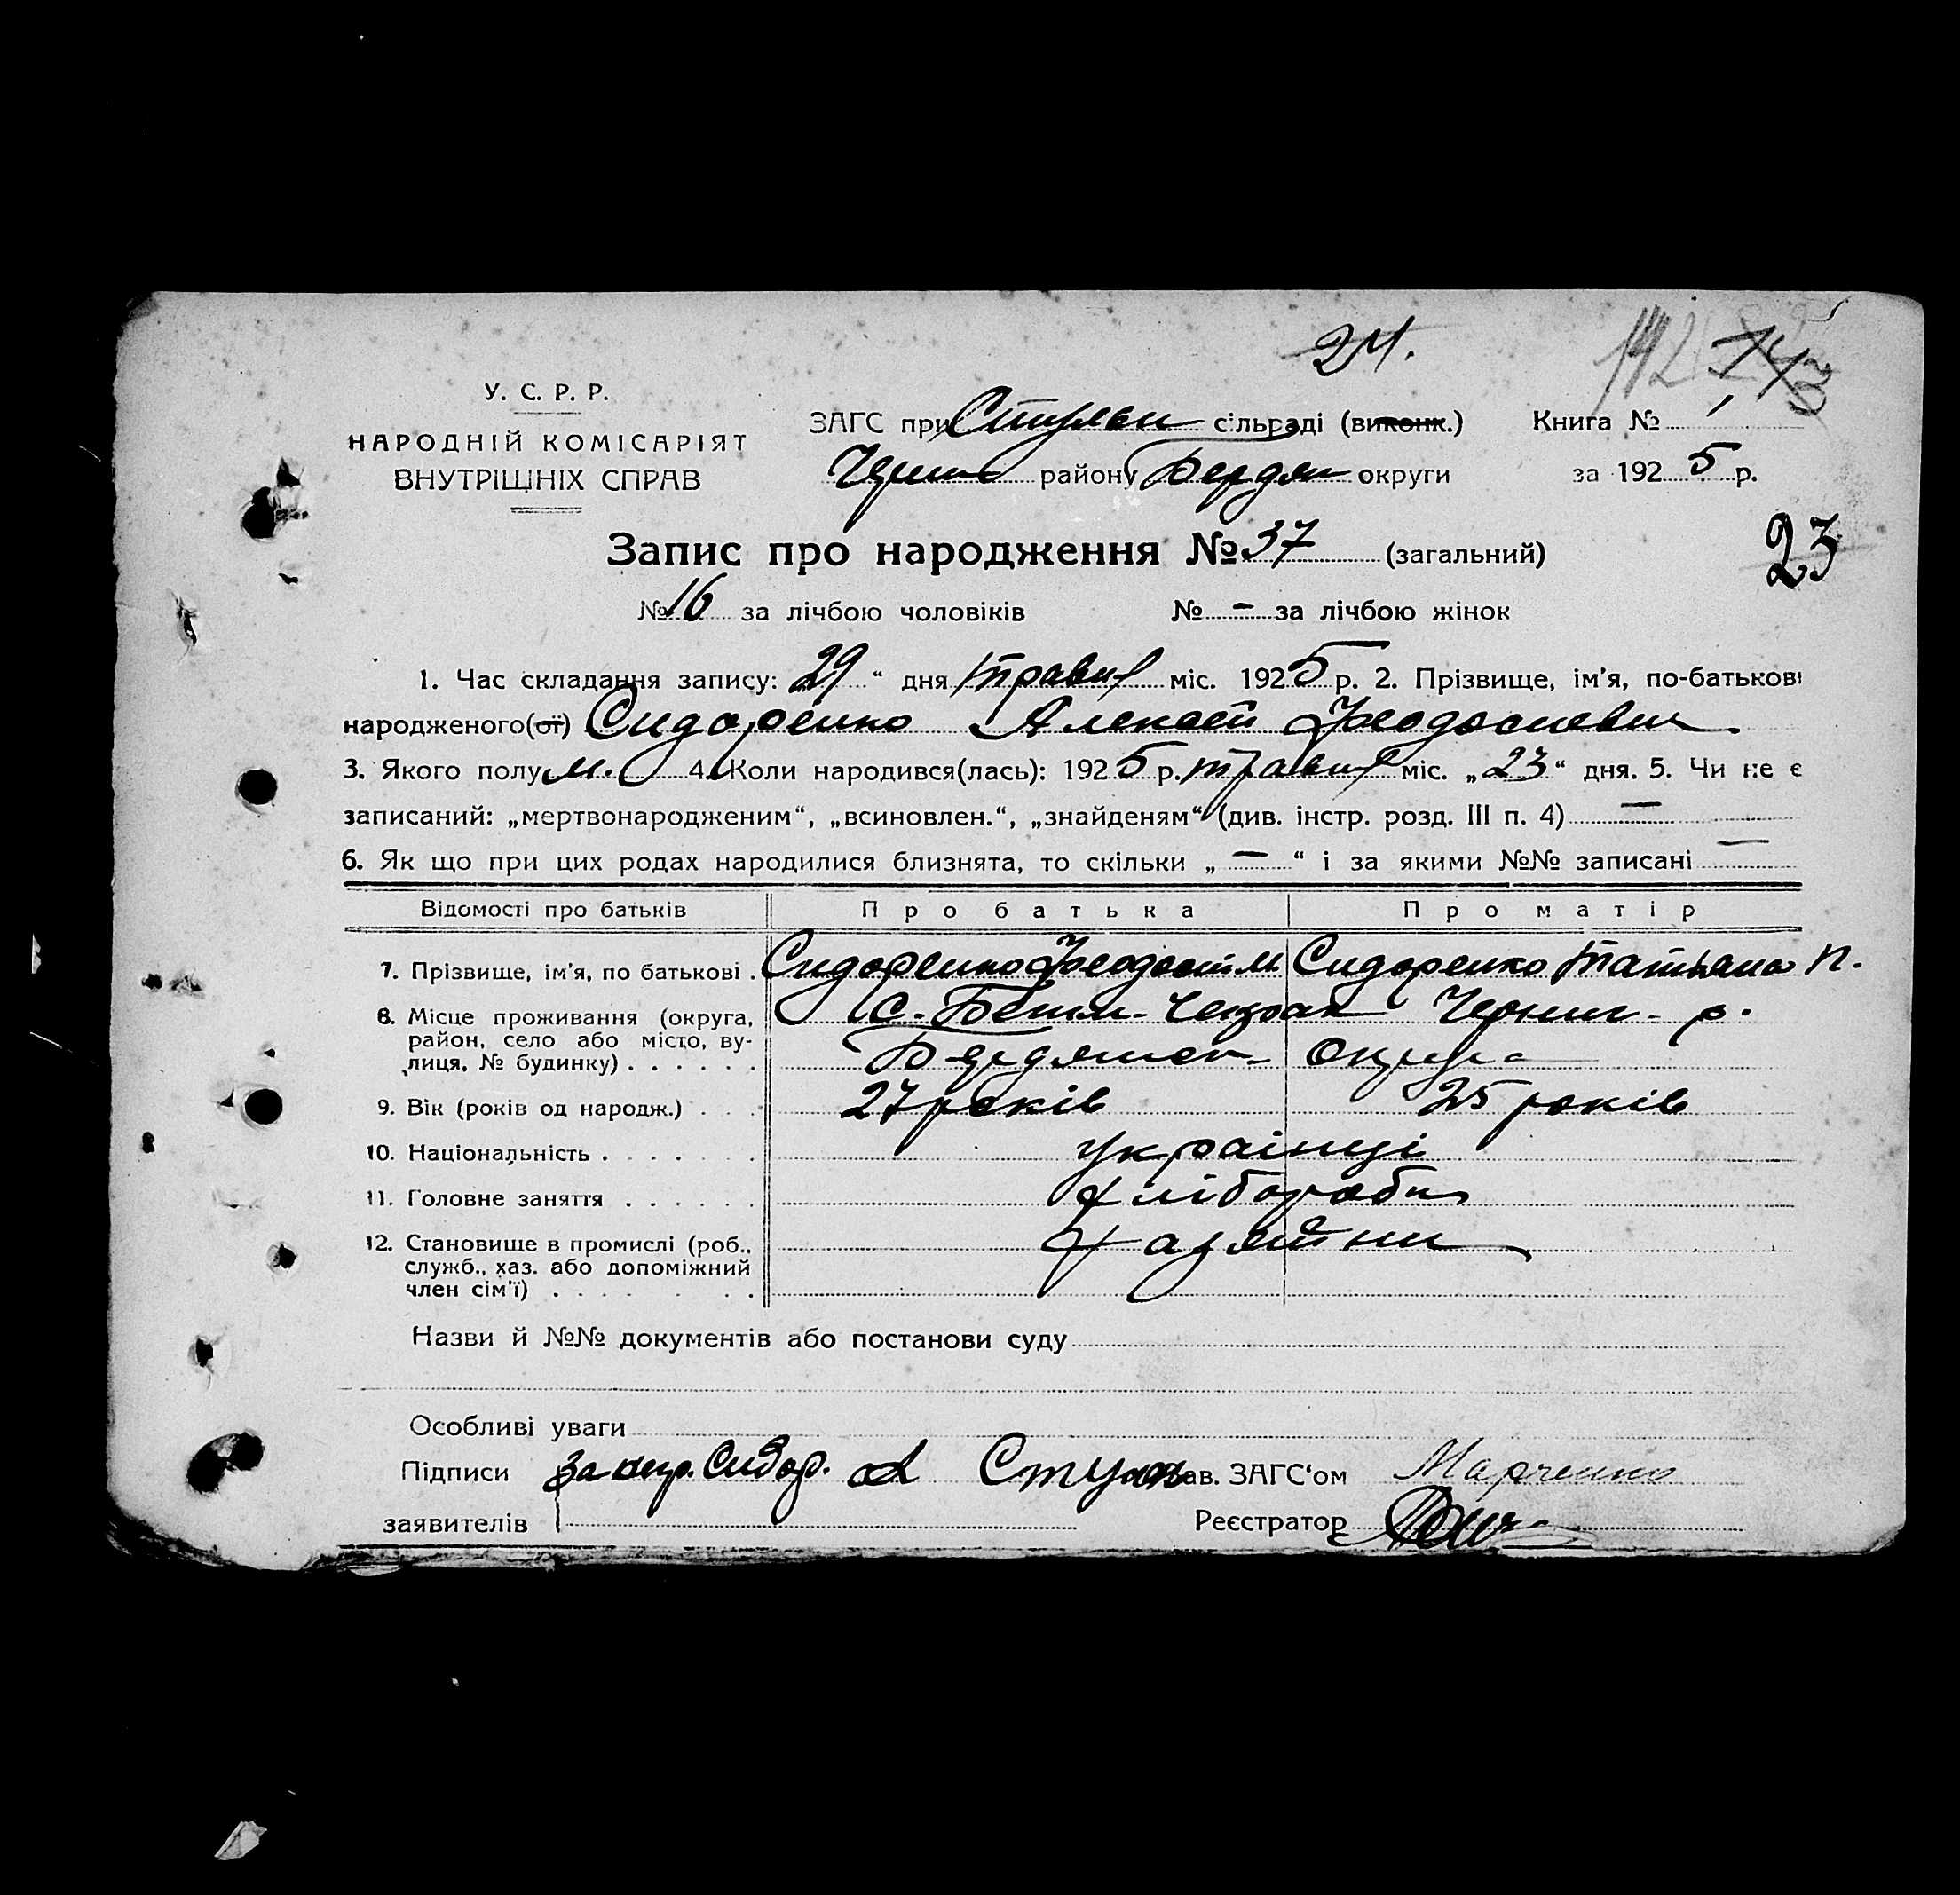 24.
142 143
У. С. Р. Р.
НАРОДНІЙ КОМІСАРІЯТ
ВНУТРІШНІХ СПРАВ
ЗАГС при Стульн сільраді (виконк.) Книга № 1
Черниг району Бердян округи за 1925 р.
Запис про народження № 37 (загальний)
23
№ 16 за лічбою чоловіків № – за лічбою жінок
1. Час складання запису: 29 “ дня травня міс. 1925 р. 2. Прізвище, ім'я, по-батькові
народженого(ої) Сидоренко Алексей Феодосиевич
3. Якого полу м. 4. Коли народився(лась): 1925 р. травня міс. „23“ дня. 5. Чи не є
записаний: „мертвонародженим“, „всиновлен.“, „знайденям“ (див. інстр. розд. III п. 4) —
6. Як що при цих родах народилися близнята, то скільки „ — “ і за якими №№ записані —
Відомості про батьків Про батька Про матір
7. Прізвище, ім'я, по батькові . Сидоренко Феодосий М Сидоренко Татьяна П.
8. Місце проживання (округа, район, село або місто, вулиця, № будинку) . . . . . . С. Бегим-Чокрак Черниг. р.
Бердянск округа
9. Вік (років од народж.) . . . 27 років 25 років
10. Національність . . . . . . . українці
11. Головне заняття . . . . . . хлібороби
12. Становище в промислі (роб., служб., хаз. або допоміжний член сім'ї) . . . . . . . Хазяйни
Назви й №№ документів або постанови суду
Особливі уваги
Підписи За негр. Сидор. Зав. ЗАГС'ом Марченко
заявителів Реєстратор